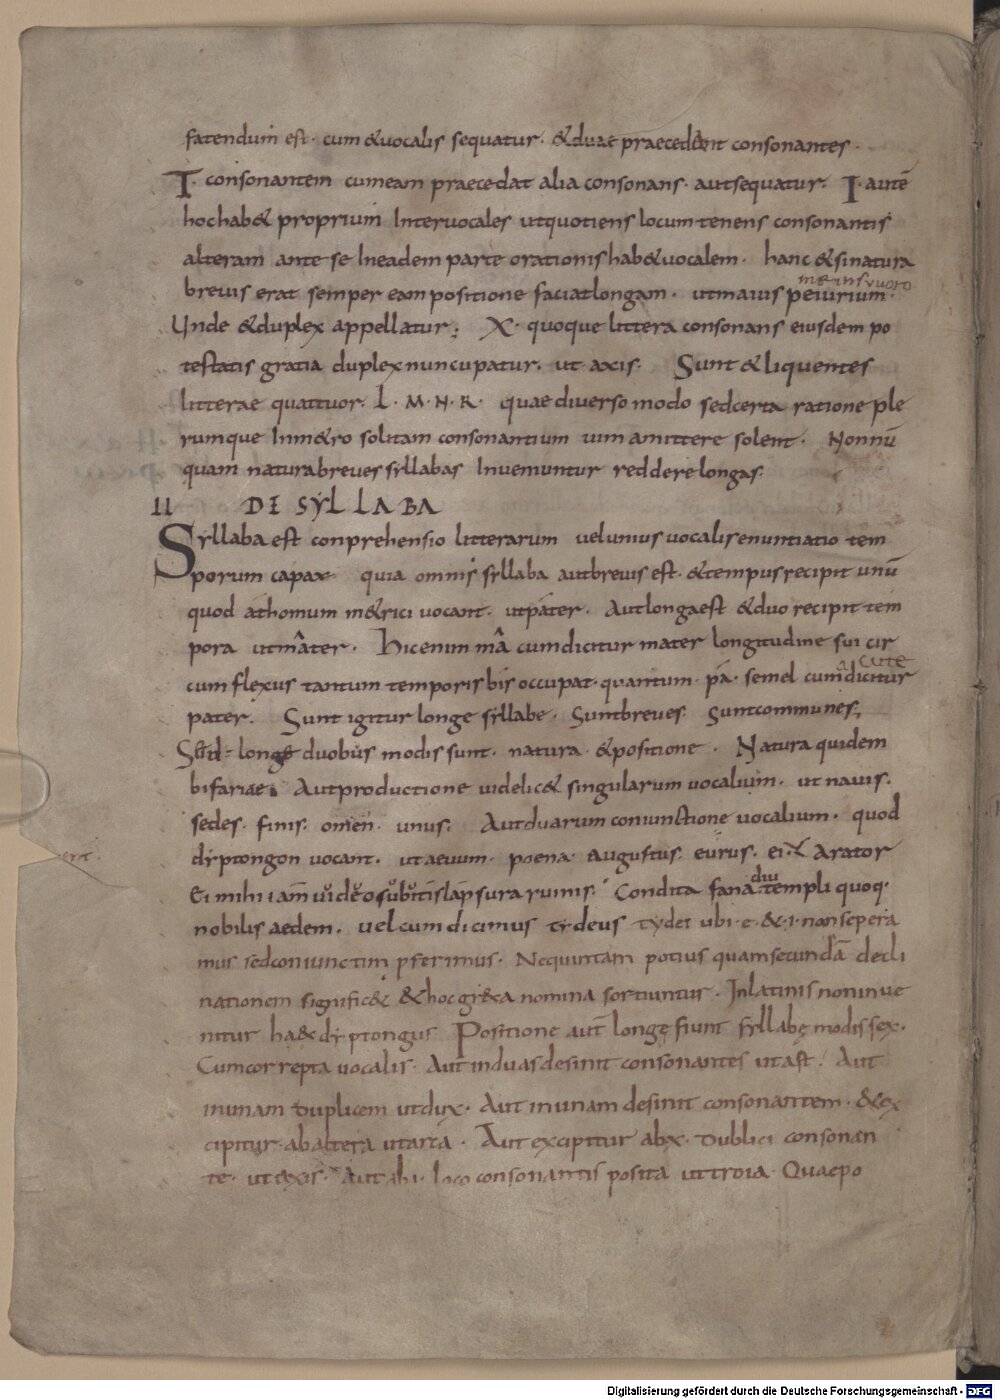 fatendum est. cum & vocalis sequatur. & duae praecedant consonantes.
I. consonantem cum eam praecedat alia consonans. aut sequatur. I. autē
hoc hab& proprium Inter vocales ut quotiens locum tenens consonantis
alteram ante se In eadem parte orationis hab& vocalem. hanc & si natura
brevis erat semper eam positione faciat longam. ut maius peiurium.
Unde & duplex appellatur; X. quoque littera consonans eiusdem po
testatis gratia duplex nuncupatur. ut axis. Sunt & liquentes
litterae quattuor. L. M. N. R. quae diverso modo sed certa ratione ple
rumque In m&ro solitam consonantium uim amittere solent. Nonnū
quam natura breves syllabas Inveniuntur reddere longas.
II DE SYLLABA
Syllaba est conprehensio litterarum vel unius vocalis enuntiatio tem
porum capax. quia omnis syllaba aut brevis est. & tempus recipit unū
quod athomum m&rici vocant. ut páter. Aut longa est & duo recipit tem
pora ut mâter. Hic enim mâ cum dicitur mater longitudine sui cir
cumflexus tantum temporis bis occupat. quantum. pá. semel cum dicitur
cute
pater. Sunt igitur longe syllabe. Sunt breves. Sunt communes;
Sed longe duobus modis sunt. natura. & positione. Natura quidem
bifariae. Aut productione videlic& singularum vocalium. ut navis.
sedes. finis. omen. unus. Aut duarum coniunctione vocalium. quod
dyptongon vocant. ut aevum. poena. augustus. eurus. ei. Arator
Ei mihi iam video subitis lapsura ruinis. Condita fana diu templi quoq.
nobilis aedem. vel cum dicimus tydeus tydei ubi. e. & i. non sepera
mus sed coniunctim pferimus. Ne quintam potius quam secundā decli
nationem signific& & hoc gr&ca nomina sortiuntur. In latinis non inve
nitur haec dyptongus Positione aut longę fiunt syllabę modis sex.
Cum correpta vocalis. Aut in duas desinit consonantes ut ast. Aut
in unam duplicem ut dux. Aut in unam desinit consonantem. & ex
cipitur ab altera ut arca. Aut excipitur ab x. dublici consonan
te. ut axis. Aut ab i. loco consonantis posita ut troia. Quae po
Digitalisierung gefördert durch die Deutsche Forschungsgemeinschaft - DFG